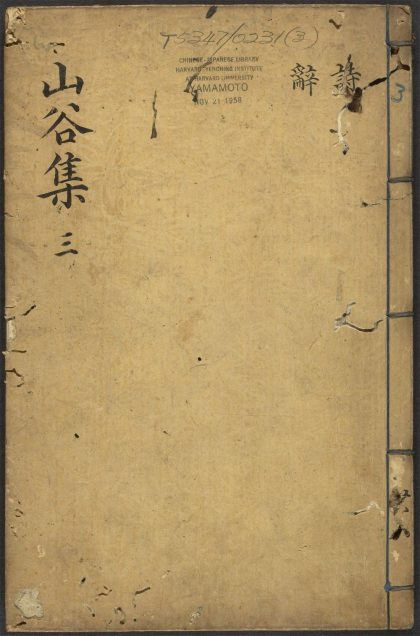 T5347/0231(3)
CHINESE-JAPANESE LIBRARY
HARVARD-YENCHING INSTITUTE
AT HARVARD UNIVERSITY
YAMAMOTO
NOV 21 1938
3
詩
辭
山谷集 三
共